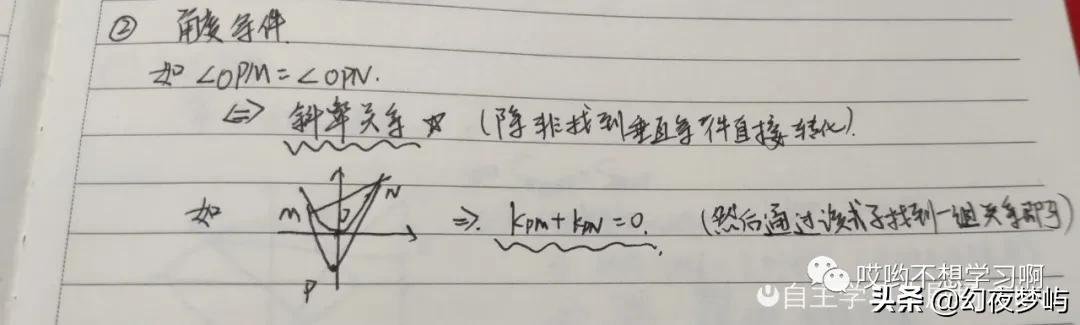 ② 角度条件
如 ∠OPM = ∠OPN.
⇔ 斜率关系 ☆ (除非找到垂直条件直接转化).
如 M N P ⇒ kPM + kPN = 0. (然后通过该式子找到一组关系即可)
哎哟不想学习啊
自主学
头条@幻夜梦屿